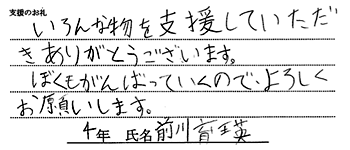 支援のお礼
いろんな物を支援していただ
きありがとうございます。
ぼくもがんばっていくので、よろしく
お願いします。
4年 氏名 前川